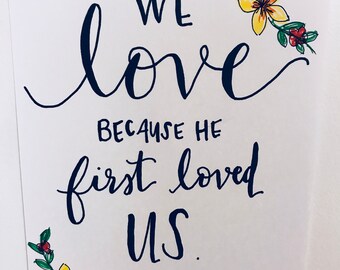 WE
love
BECAUSE HE
first loved
US.